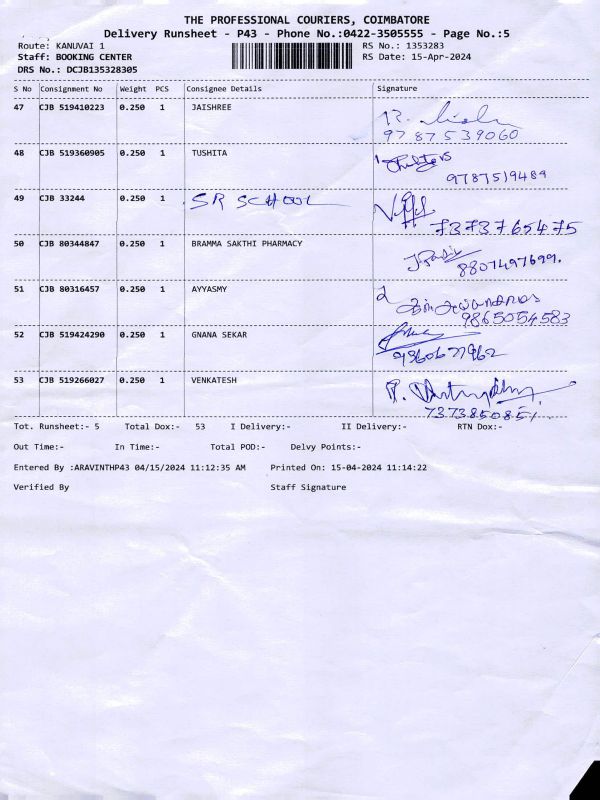 THE PROFESSIONAL COURIERS, COIMBATORE
Delivery Runsheet - P43 - Phone No.:0422-3505555 - Page No.:5
Route: KANUVAI 1 RS No.: 1353283
Staff: BOOKING CENTER RS Date: 15-Apr-2024
DRS No.: DCJB135328305
S No Consignment No Weight PCS Consignee Details Signature
47 CJB 519410223 0.250 1 JAISHREE
9787539060
48 CJB 519360905 0.250 1 TUSHITA
9787519489
49 CJB 33244 0.250 1 SR SCHOOL
7373765475
50 CJB 80344847 0.250 1 BRAMMA SAKTHI PHARMACY
8807497699.
51 CJB 80316457 0.250 1 AYYASMY
9865054583
52 CJB 519424290 0.250 1 GNANA SEKAR
9360677962
53 CJB 519266027 0.250 1 VENKATESH
7373850851.
Tot. Runsheet:- 5 Total Dox:- 53 I Delivery:- II Delivery:- RTN Dox:-
Out Time:- In Time:- Total POD:- Delvy Points:-
Entered By :ARAVINTHP43 04/15/2024 11:12:35 AM Printed On: 15-04-2024 11:14:22
Verified By Staff Signature